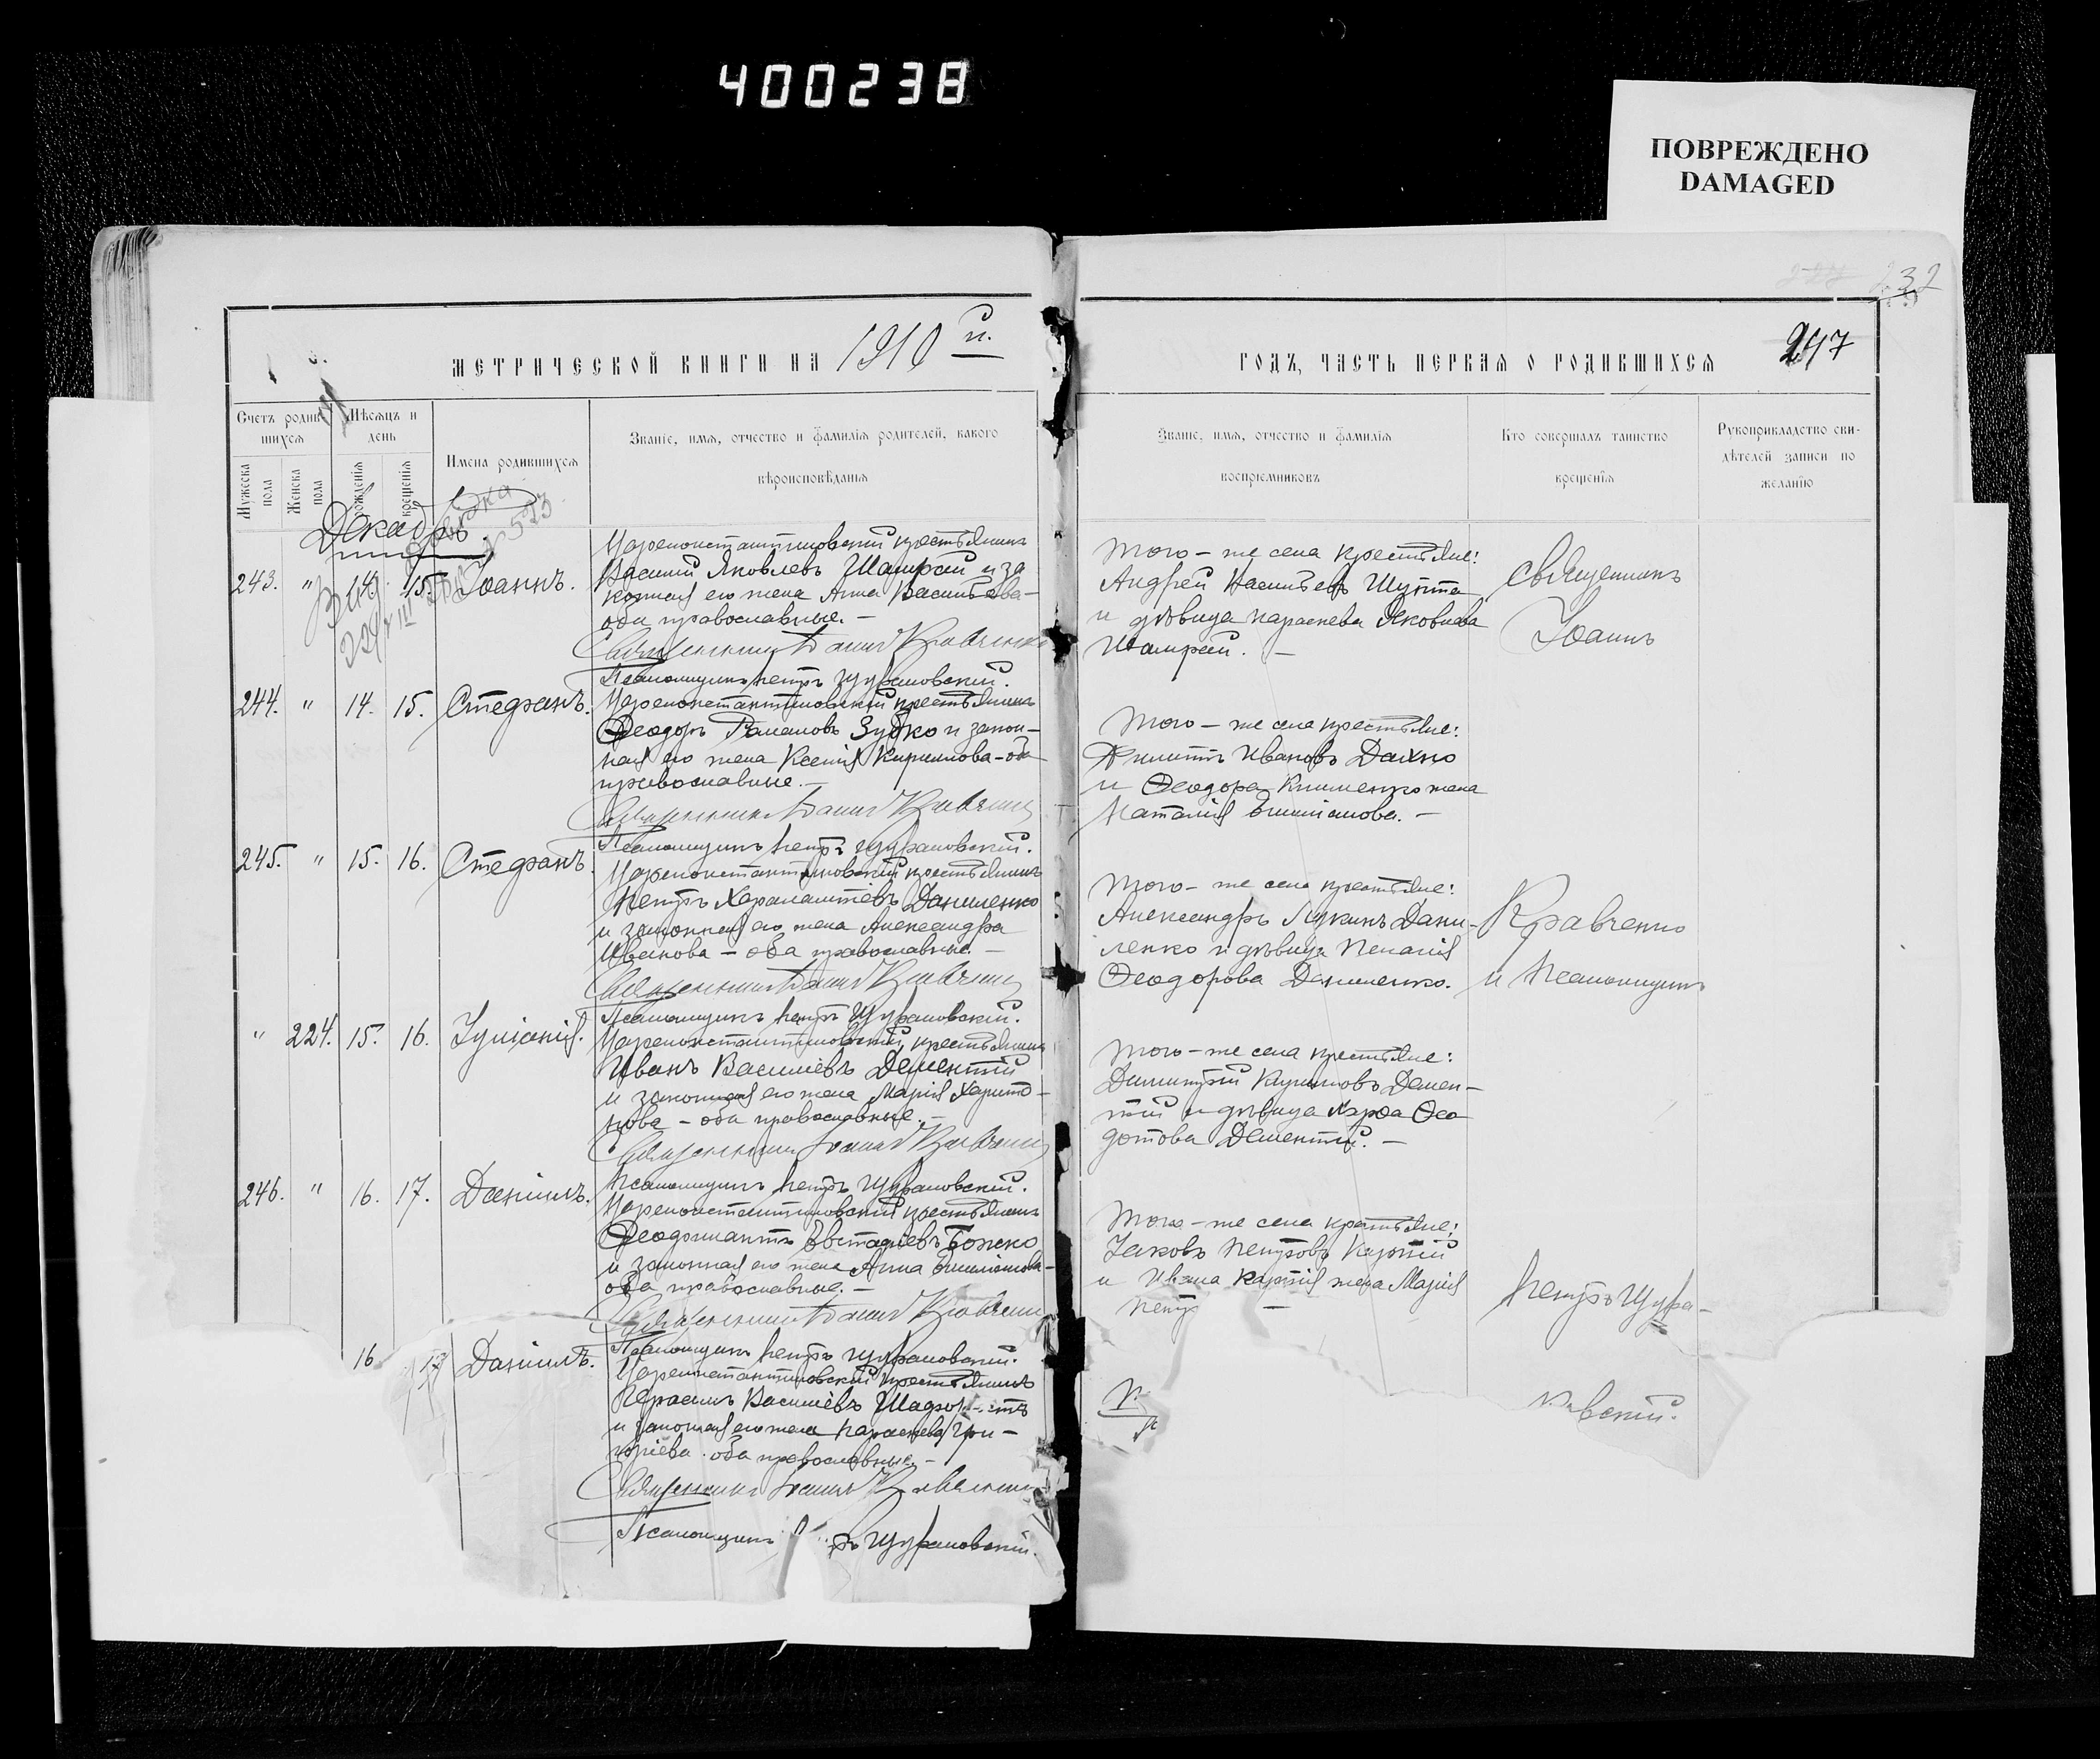 400238
ПОВРЕЖДЕНО
DAMAGED
232
МЕТРИЧЕСКОЙ КНИГИ НА 1910 г.
Счетъ родив-
шихся
Мѣсяцъ и
день
Имена родившихся
Званіе, имя, отчество и фамилія родителей, какого
вѣроисповѣданія
Мужеска
пола
Женска
пола
рожденія
крещенія
Декабрь.
243. " 14. 15. Іоаннъ.
Цареконстантиновскій крестьянинъ
Василій Яковлевъ Шамрай и за
конная его жена Анна Васильева
оба православные. —
Священникъ Іоаннъ Кравченко
Псаломщикъ Петръ Цурановскій.
244. " 14. 15. Стефанъ.
Цареконстантиновскій крестьянинъ
Феодоръ Романовъ Зубко и закон-
ная его жена Ксенія Кириллова - оба
православные. —
Священникъ Іоаннъ Кравченко
Псаломщикъ Петръ Цурановскій.
245. " 15. 16. Стефанъ.
Цареконстантиновскій крестьянинъ
Петръ Харалампіевъ Даниленко
и законная его жена Александра
Иванова - оба православные. —
Священникъ Іоаннъ Кравченко
Псаломщикъ Петръ Цурановскій.
" 224. 15. 16. Іуліанія.
Цареконстантиновскій крестьянинъ
Иванъ Василіевъ Дементій
и законная его жена Марія Харито-
нова - оба православные. —
Священникъ Іоаннъ Кравченко
Псаломщикъ Петръ Цурановскій.
246. " 16. 17. Даніилъ.
Цареконстантиновскій крестьянинъ
Евстафіевъ Божко
и законная его жена Анна
оба православные. —
Священникъ Іоаннъ Кравченко
Псаломщикъ Петръ Цурановскій.
16 17 Даніилъ.
Цареконстантиновскій крестьянинъ
Герасимъ Василіевъ
и законная его жена Параскева Гри-
горіева оба православные. —
Священникъ Іоаннъ Кравченко
Псаломщикъ ръ Цурановскій.
ГОДЪ, ЧАСТЬ ПЕРВАЯ О РОДИВШИХСЯ 247
Званіе, имя, отчество и фамилія
воспріемниковъ
Кто совершалъ таинство
крещенія
Рукоприкладство сви-
дѣтелей записи по
желанію
Того - же села крестьяне:
Андрей Васильевъ
и дѣвица Параскева Яковлева
Шамрай. —
Того - же села крестьяне:
Филиппъ Ивановъ Дахно
и Феодора Клименко жена
Наталія —
Того - же села крестьяне:
Александръ Лукинъ Дани-
ленко и дѣвица Пелагія
Феодорова Даниленко.
Того - же села крестьяне:
Димитрій Кирилловъ Демен-
тій и дѣвица Марфа Фео
дотова Дементій. —
Того - же села крестьяне:
Іаковъ Петровъ
и Ивана жена Марія
Петр —
Священникъ
Іоаннъ
Кравченко
и Псаломщикъ
Петръ Цура-
новскій.